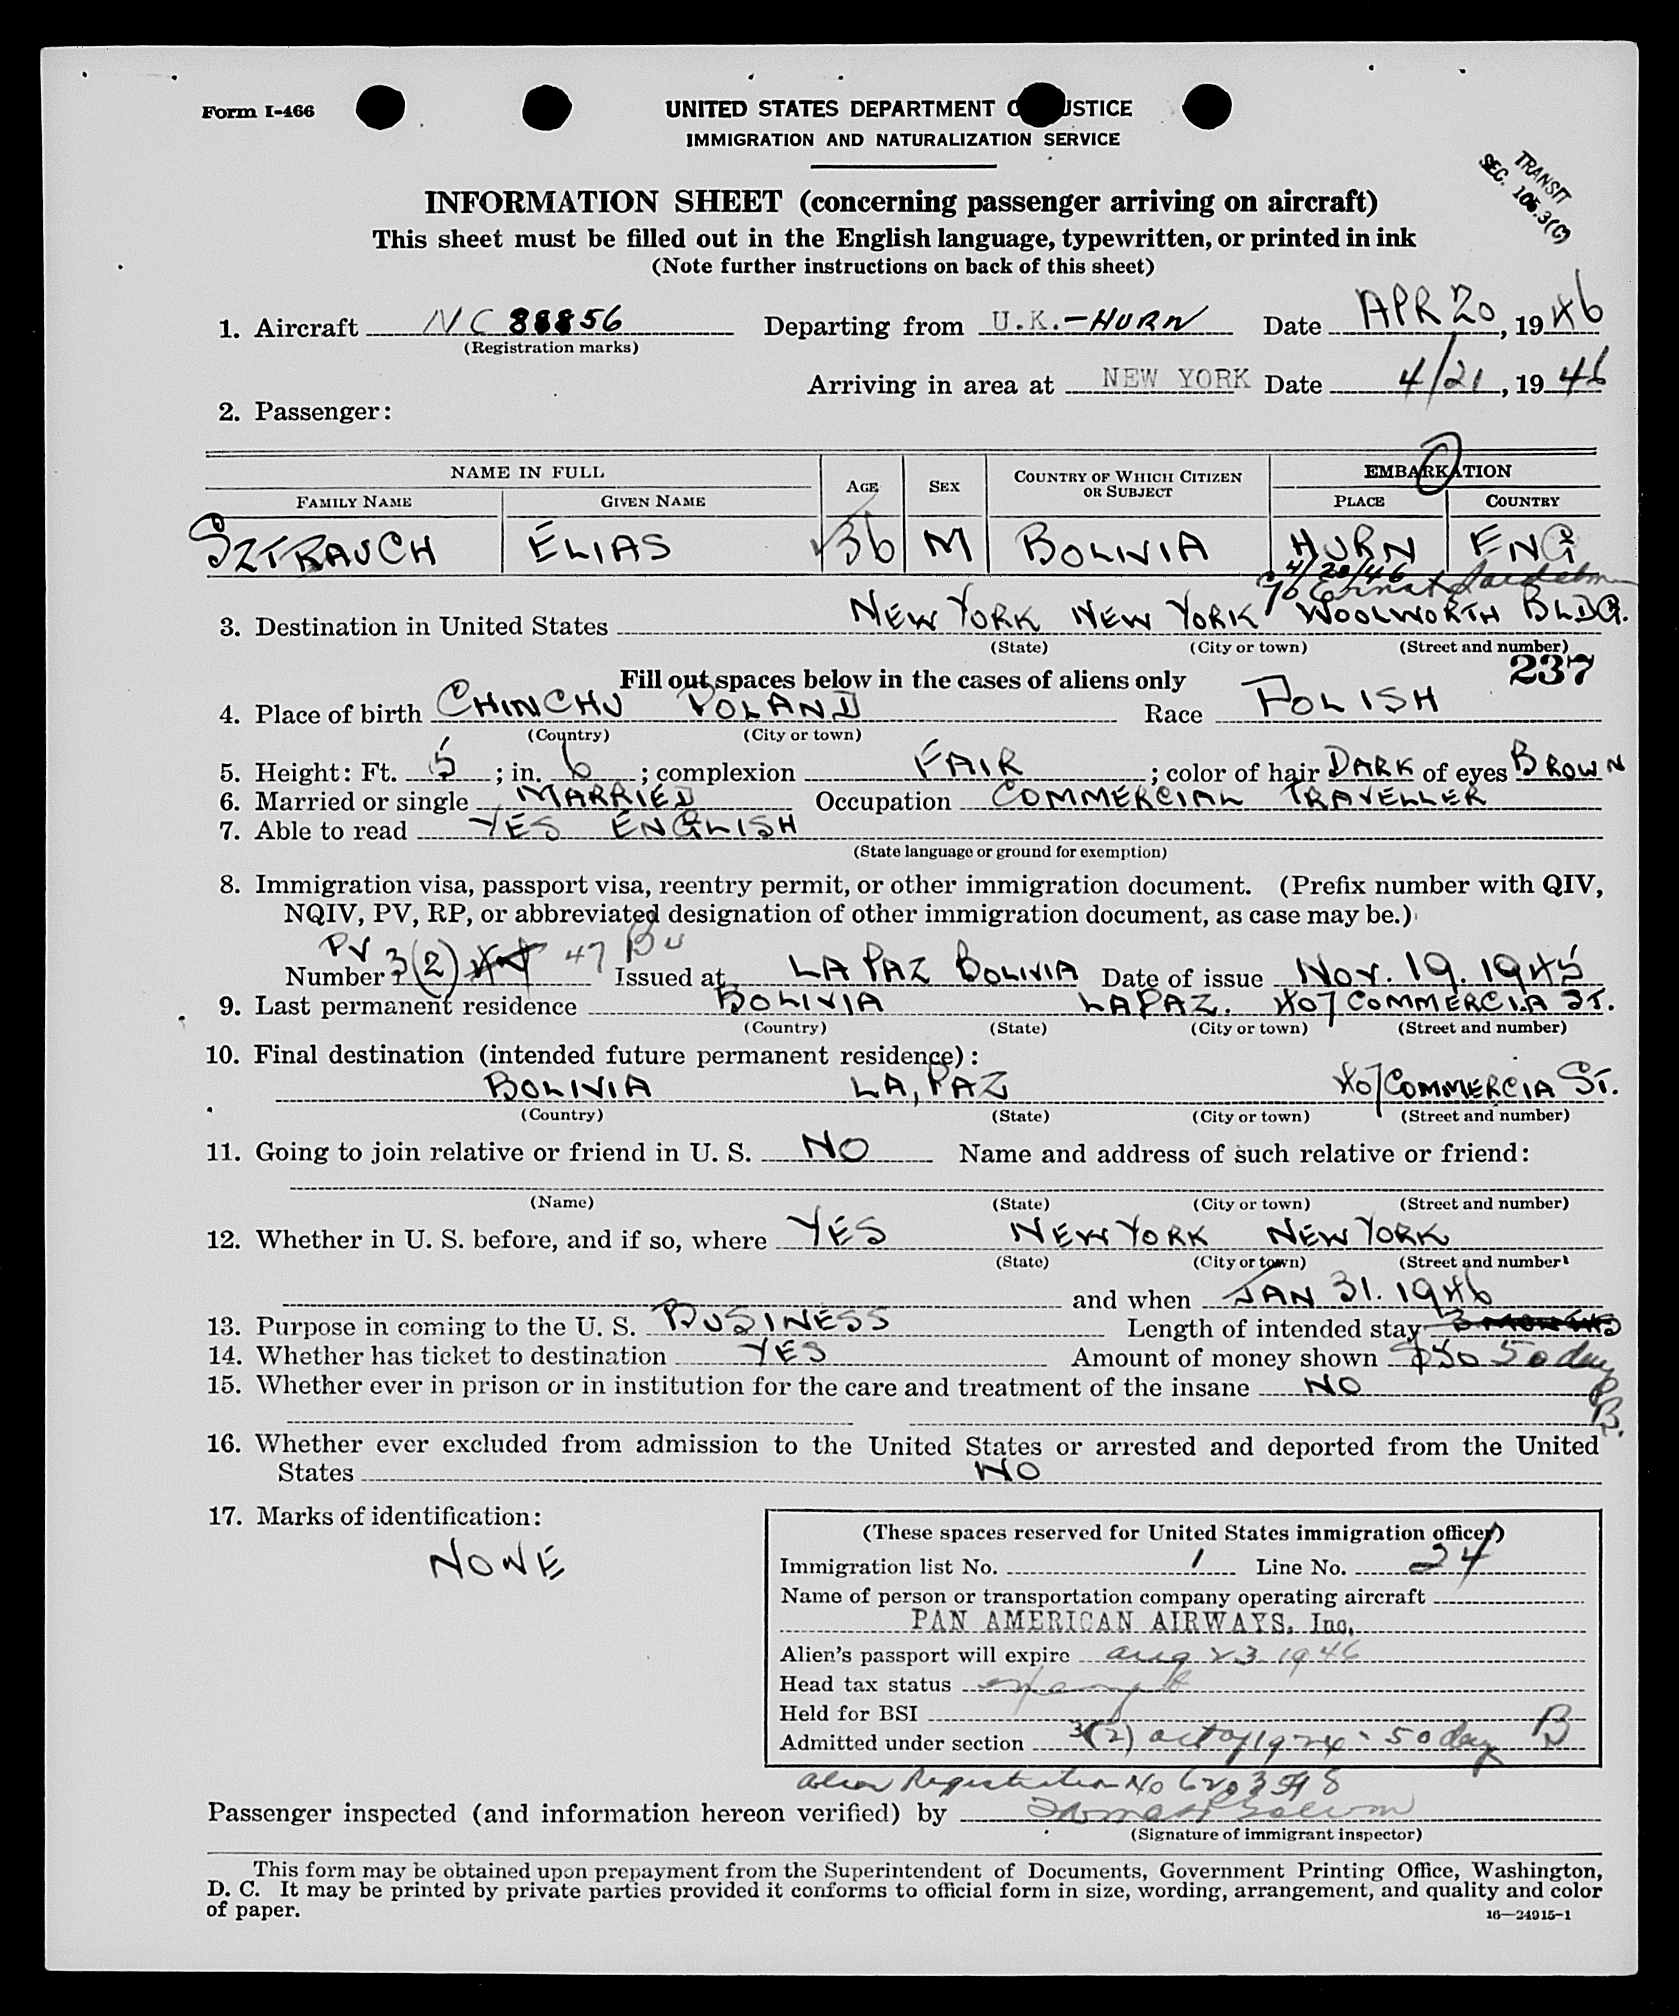 Form I-466
UNITED STATES DEPARTMENT OF JUSTICE
IMMIGRATION AND NATURALIZATION SERVICE
TRANSIT
SEC. 105.3(C)
INFORMATION SHEET (concerning passenger arriving on aircraft)
This sheet must be filled out in the English language, typewritten, or printed in ink
(Note further instructions on back of this sheet)
1. Aircraft NC 88856 Departing from U.K.-HURN Date APR 20, 1946
(Registration marks)
Arriving in area at NEW YORK Date 4/21, 1946
2. Passenger:
NAME IN FULL AGE SEX COUNTRY OF WHICH CITIZEN OR SUBJECT EMBARKATION
FAMILY NAME GIVEN NAME PLACE COUNTRY
SZTRAUCH ELIAS 36 M BOLIVIA HURN ENG
4/20/46
c/o Ernst
3. Destination in United States NEW YORK NEW YORK WOOLWORTH BLDG.
(State) (City or town) (Street and number)
237
Fill out spaces below in the cases of aliens only
4. Place of birth CHINCHU POLAND Race POLISH
(Country) (City or town)
5. Height: Ft. 5; in. 6; complexion FAIR; color of hair DARK of eyes BROWN
6. Married or single MARRIED Occupation COMMERCIAL TRAVELLER
7. Able to read YES ENGLISH
(State language or ground for exemption)
8. Immigration visa, passport visa, reentry permit, or other immigration document. (Prefix number with QIV,
NQIV, PV, RP, or abbreviated designation of other immigration document, as case may be.)
PV
Number 3(2) 47 Bu Issued at LA PAZ BOLIVIA Date of issue NOV. 19. 1945
9. Last permanent residence BOLIVIA LA PAZ. 407 COMMERCIA ST.
(Country) (State) (City or town) (Street and number)
10. Final destination (intended future permanent residence):
BOLIVIA LA, PAZ 407 COMMERCIA ST.
(Country) (State) (City or town) (Street and number)
11. Going to join relative or friend in U. S. NO Name and address of such relative or friend:
(Name) (State) (City or town) (Street and number)
12. Whether in U. S. before, and if so, where YES NEW YORK NEW YORK
(State) (City or town) (Street and number)
and when JAN 31. 1946
13. Purpose in coming to the U. S. BUSINESS Length of intended stay 3 MONTHS
14. Whether has ticket to destination YES Amount of money shown $50 50 days
15. Whether ever in prison or in institution for the care and treatment of the insane NO
B.
16. Whether ever excluded from admission to the United States or arrested and deported from the United
States NO
17. Marks of identification:
NONE
(These spaces reserved for United States immigration officer)
Immigration list No. 1 Line No. 24
Name of person or transportation company operating aircraft
PAN AMERICAN AIRWAYS, Inc.
Alien's passport will expire Aug 23 1946
Head tax status exempt
Held for BSI
Admitted under section 3(2) act of 1924 - 50 days B
Alien Registration No 6203598
Passenger inspected (and information hereon verified) by Thomas
(Signature of immigrant inspector)
This form may be obtained upon prepayment from the Superintendent of Documents, Government Printing Office, Washington,
D. C. It may be printed by private parties provided it conforms to official form in size, wording, arrangement, and quality and color
of paper.
16—24915-1